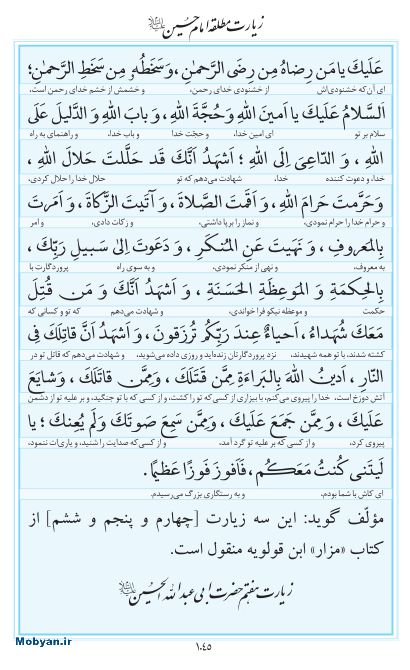 زیارت مطلقه امام حسین علیه‌السلام
عَلَیكَ یا مَن رِضاهُ مِن رِضَی الرَّحمٰنِ، وَسَخَطُهُ مِن سَخَطِ الرَّحمٰنِ؛
ای آن‌که خشنودی‌اش از خشنودی خدای رحمن، و خشمش از خشم خدای رحمن است،
اَلسَّلامُ عَلَیكَ یا اَمینَ اللهِ وَحُجَّةَ اللهِ، وَبابَ اللهِ وَ الدَّلیلَ عَلَی
سلام بر تو ای امین خدا، و حجت خدا و باب خدا، و راهنمای به راه
اللهِ، وَ الدّاعِیَ اِلَی اللهِ؛ اَشهَدُ اَنَّكَ قَد حَلَّلتَ حَلالَ اللهِ،
خدا، و دعوت کننده خدا، شهادت می‌دهم که تو حلال خدا را حلال کردی،
وَحَرَّمتَ حَرامَ اللهِ، وَ اَقَمتَ الصَّلاةَ، وَ آتَیتَ الزَّکاةَ، وَ اَمَرتَ
و حرام خدا را حرام نمودی، و نماز را برپا داشتی، و زکات دادی، و امر
بِالمَعروفِ، وَ نَهَیتَ عَنِ المُنکَرِ، وَ دَعَوتَ اِلیٰ سَبیلِ رَبِّكَ،
به معروف، و نهی از منکر نمودی، و به سوی راه پروردگارت با
بِالحِکمَةِ وَ المَوعِظَةِ الحَسَنَةِ، وَ اَشهَدُ اَنَّكَ وَ مَن قُتِلَ
حکمت و موعظه نیکو فرا خواندی، و شهادت می‌دهم که تو و کسانی که
مَعَكَ شُهَداءُ، اَحیاءٌ عِندَ رَبِّکُم تُرزَقونَ، وَ اَشهَدُ اَنَّ قاتِلَكَ فِی
کشته شدند، با تو همه شهیدند، نزد پروردگارتان زنده‌اید و روزی داده می‌شوید، و شهادت می‌دهم که قاتل تو در
النّارِ، اَدینُ اللهَ بِالبَراءَةِ مِمَّن قَتَلَكَ، وَمِمَّن قاتَلَكَ، وَشایَعَ
آتش دوزخ است. خدا را دینداری می‌کنم، با بیزاری از کسی که تو را کشت، و از کسی که با تو جنگید، و بر علیه تو از دشمن
عَلَیكَ، وَ مِمَّن جَمَعَ عَلَیكَ، وَمِمَّن سَمِعَ صَوتَكَ وَلَم یُعِنكَ؛ یا
پیروی کرد، و از کسی که بر علیه تو گرد آمد، و از کسی که صدایت را شنید، و یاری‌ات ننمود،
لَیتَنی کُنتُ مَعَکُم، فَاَفوزَ فَوزًا عَظیمًا.
ای کاش با شما بودم، و به رستگاری بزرگ می‌رسیدم.
مؤلّف گوید: این سه زیارت [چهارم و پنجم و ششم] از
کتاب «مزار» ابن قولویه منقول است.
زیارت هفتم حضرت ابی عبدالله الحسین علیه‌السلام
Mobyan.ir
۱۰۴۵